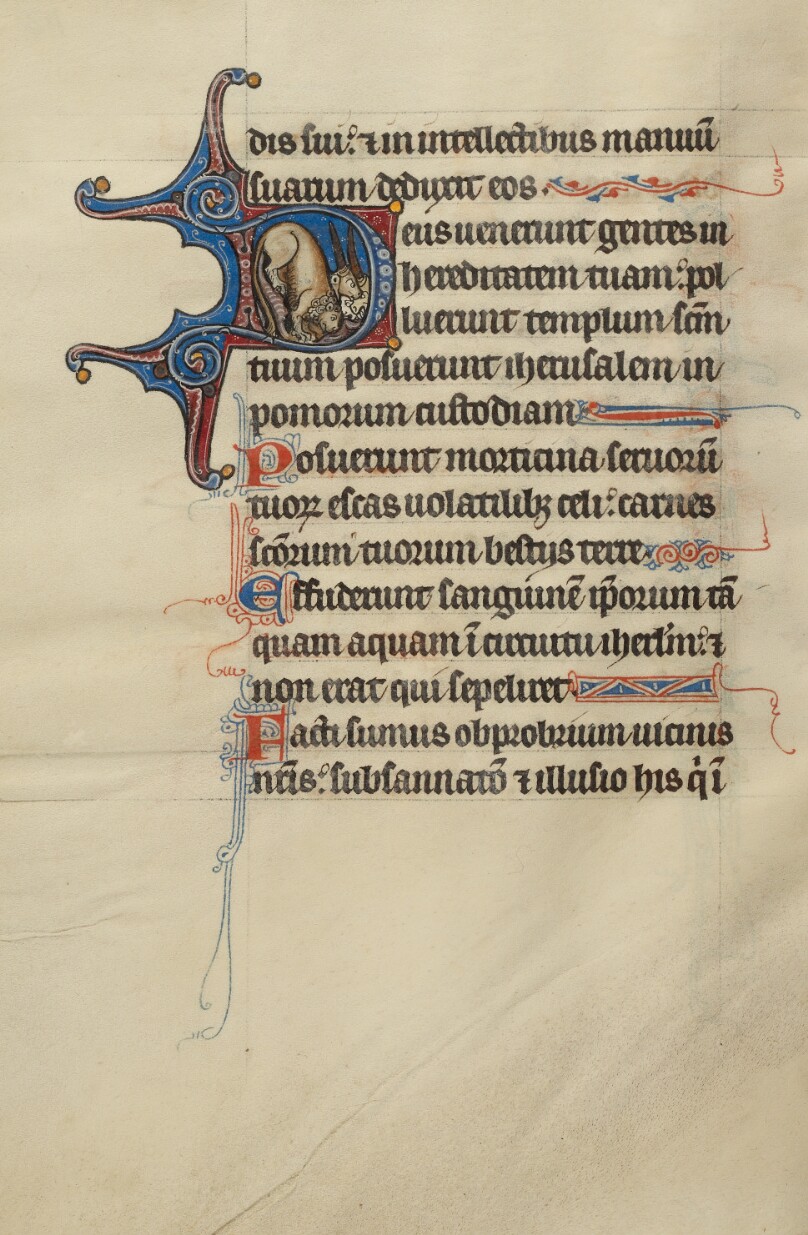 dis sui: ⁊ in intellectibus manuū
suarum deduxit eos.
Deus uenerunt gentes in
hereditatem tuam: pol
luerunt templum scm̄
tuum posuerunt iherusalem in
pomorum custodiam
Posuerunt morticina seruorū
tuoꝝ escas uolatilibꝫ celi: carnes
scōrum tuorum bestijs terre
Effuderunt sanguinē ip̄orum tā
quam aquam ī circuitu iherl̄m: ⁊
non erat qui sepeliret
Facti sumus obprobrium uicinis
nr̄is: subsannatō ⁊ illusio his q̇ ī